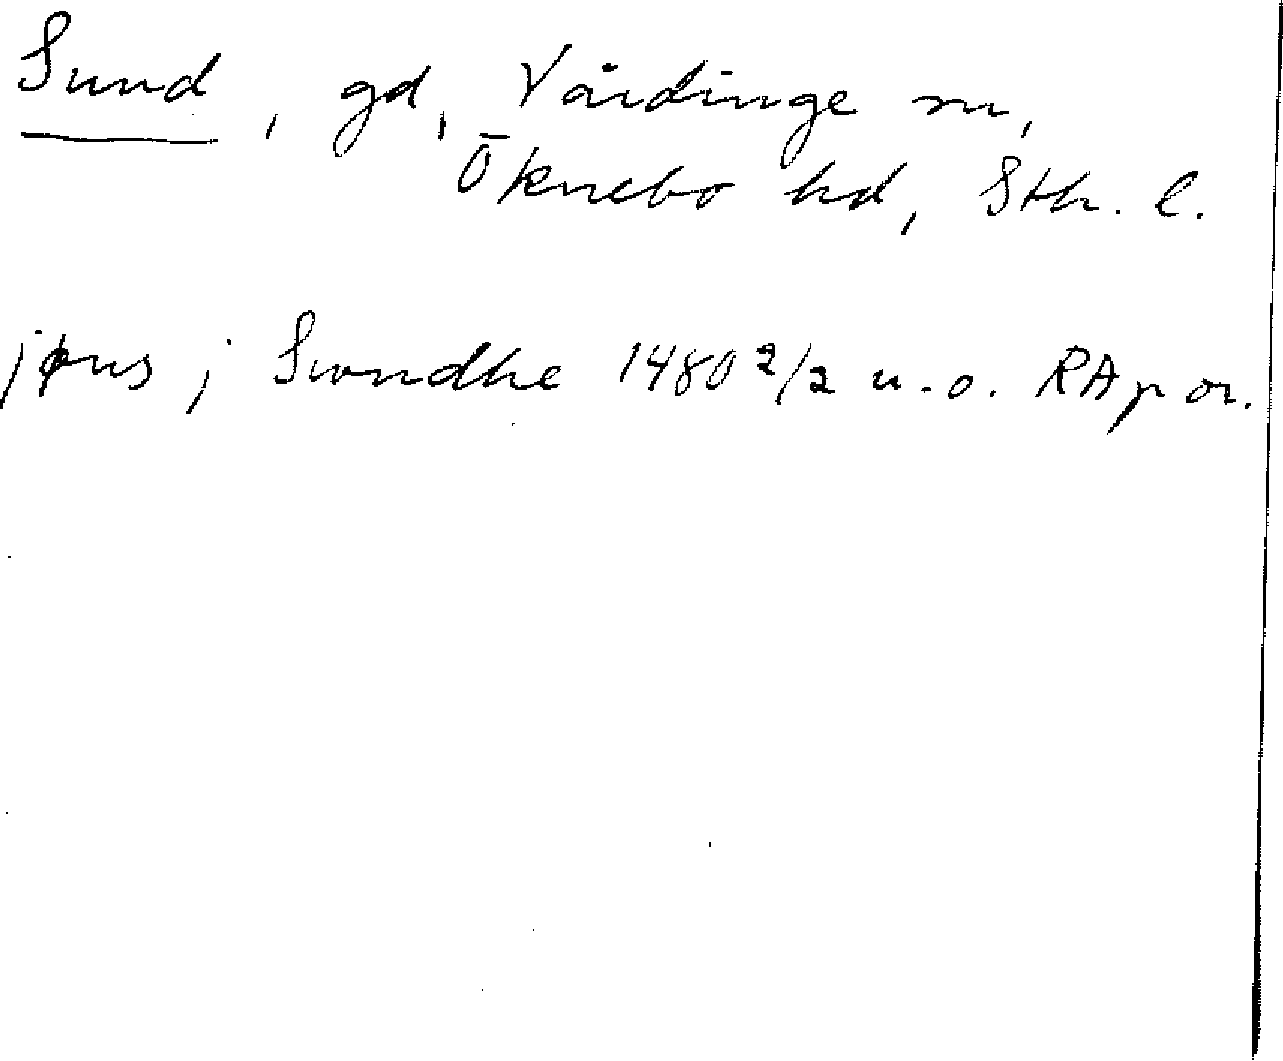 Sund, gd, Vårdinge sn,
Öknebo hd, Sth. l.
j Swndhe 1480 2/2 u.o. RAp or.